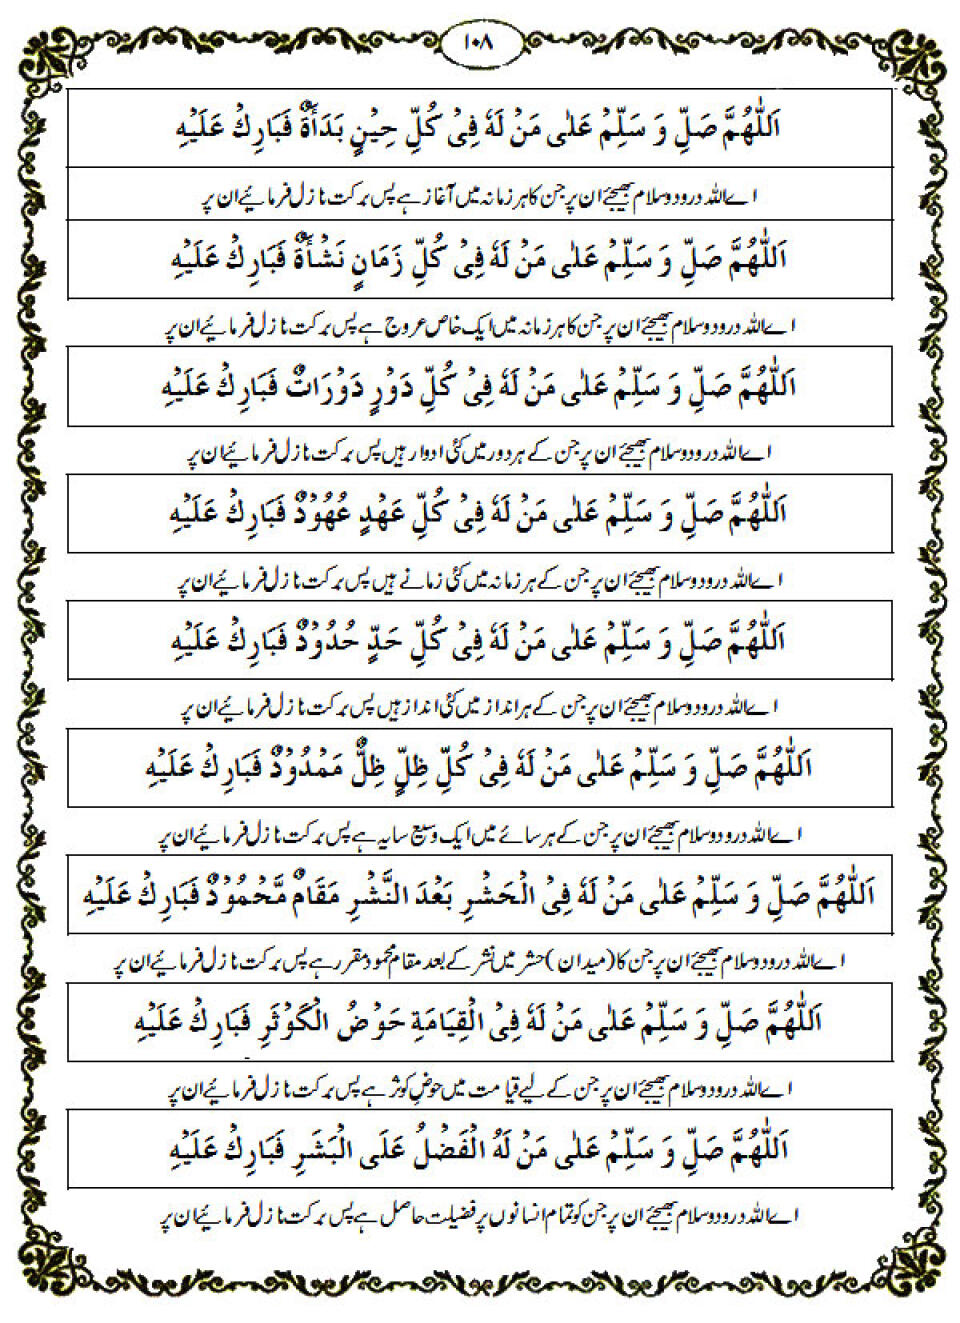 ۱۰۸
اَللّٰهُمَّ صَلِّ وَ سَلِّمْ عَلٰى مَنْ لَهٗ فِىْ كُلِّ حِيْنٍ بَدَأَةٌ فَبَارِكْ عَلَيْهِ
اے اللہ درود و سلام بھیجئے ان پر جن کا ہر زمانہ میں آغاز ہے پس برکت نازل فرمائیے ان پر
اَللّٰهُمَّ صَلِّ وَ سَلِّمْ عَلٰى مَنْ لَهٗ فِىْ كُلِّ زَمَانٍ نَشْأَةٌ فَبَارِكْ عَلَيْهِ
اے اللہ درود و سلام بھیجئے ان پر جن کا ہر زمانہ میں ایک خاص عروج ہے پس برکت نازل فرمائیے ان پر
اَللّٰهُمَّ صَلِّ وَ سَلِّمْ عَلٰى مَنْ لَهٗ فِىْ كُلِّ دَوْرٍ دَوْرَاتٌ فَبَارِكْ عَلَيْهِ
اے اللہ درود و سلام بھیجئے ان پر جن کے ہر دور میں کئی ادوار ہیں پس برکت نازل فرمائیے ان پر
اَللّٰهُمَّ صَلِّ وَ سَلِّمْ عَلٰى مَنْ لَهٗ فِىْ كُلِّ عَهْدٍ عُهُوْدٌ فَبَارِكْ عَلَيْهِ
اے اللہ درود و سلام بھیجئے ان پر جن کے ہر زمانہ میں کئی زمانے ہیں پس برکت نازل فرمائیے ان پر
اَللّٰهُمَّ صَلِّ وَ سَلِّمْ عَلٰى مَنْ لَهٗ فِىْ كُلِّ حَدٍّ حُدُوْدٌ فَبَارِكْ عَلَيْهِ
اے اللہ درود و سلام بھیجئے ان پر جن کے ہر انداز میں کئی انداز ہیں پس برکت نازل فرمائیے ان پر
اَللّٰهُمَّ صَلِّ وَ سَلِّمْ عَلٰى مَنْ لَهٗ فِىْ كُلِّ ظِلٍّ ظِلٌّ مَمْدُوْدٌ فَبَارِكْ عَلَيْهِ
اے اللہ درود و سلام بھیجئے ان پر جن کے ہر سائے میں ایک وسیع سایہ ہے پس برکت نازل فرمائیے ان پر
اَللّٰهُمَّ صَلِّ وَ سَلِّمْ عَلٰى مَنْ لَهٗ فِىْ الْحَشْرِ بَعْدَ النَّشْرِ مَقَامٌ مَّحْمُوْدٌ فَبَارِكْ عَلَيْهِ
اے اللہ درود و سلام بھیجئے ان پر جن کا (میدان) حشر میں نشر کے بعد مقام محمود مقرر ہے پس برکت نازل فرمائیے ان پر
اَللّٰهُمَّ صَلِّ وَ سَلِّمْ عَلٰى مَنْ لَهٗ فِىْ الْقِيَامَةِ حَوْضُ الْكَوْثَرِ فَبَارِكْ عَلَيْهِ
اے اللہ درود و سلام بھیجئے ان پر جن کے لیے قیامت میں حوضِ کوثر ہے پس برکت نازل فرمائیے ان پر
اَللّٰهُمَّ صَلِّ وَ سَلِّمْ عَلٰى مَنْ لَهُ الْفَضْلُ عَلَى الْبَشَرِ فَبَارِكْ عَلَيْهِ
اے اللہ درود و سلام بھیجئے ان پر جن کو تمام انسانوں پر فضیلت حاصل ہے پس برکت نازل فرمائیے ان پر